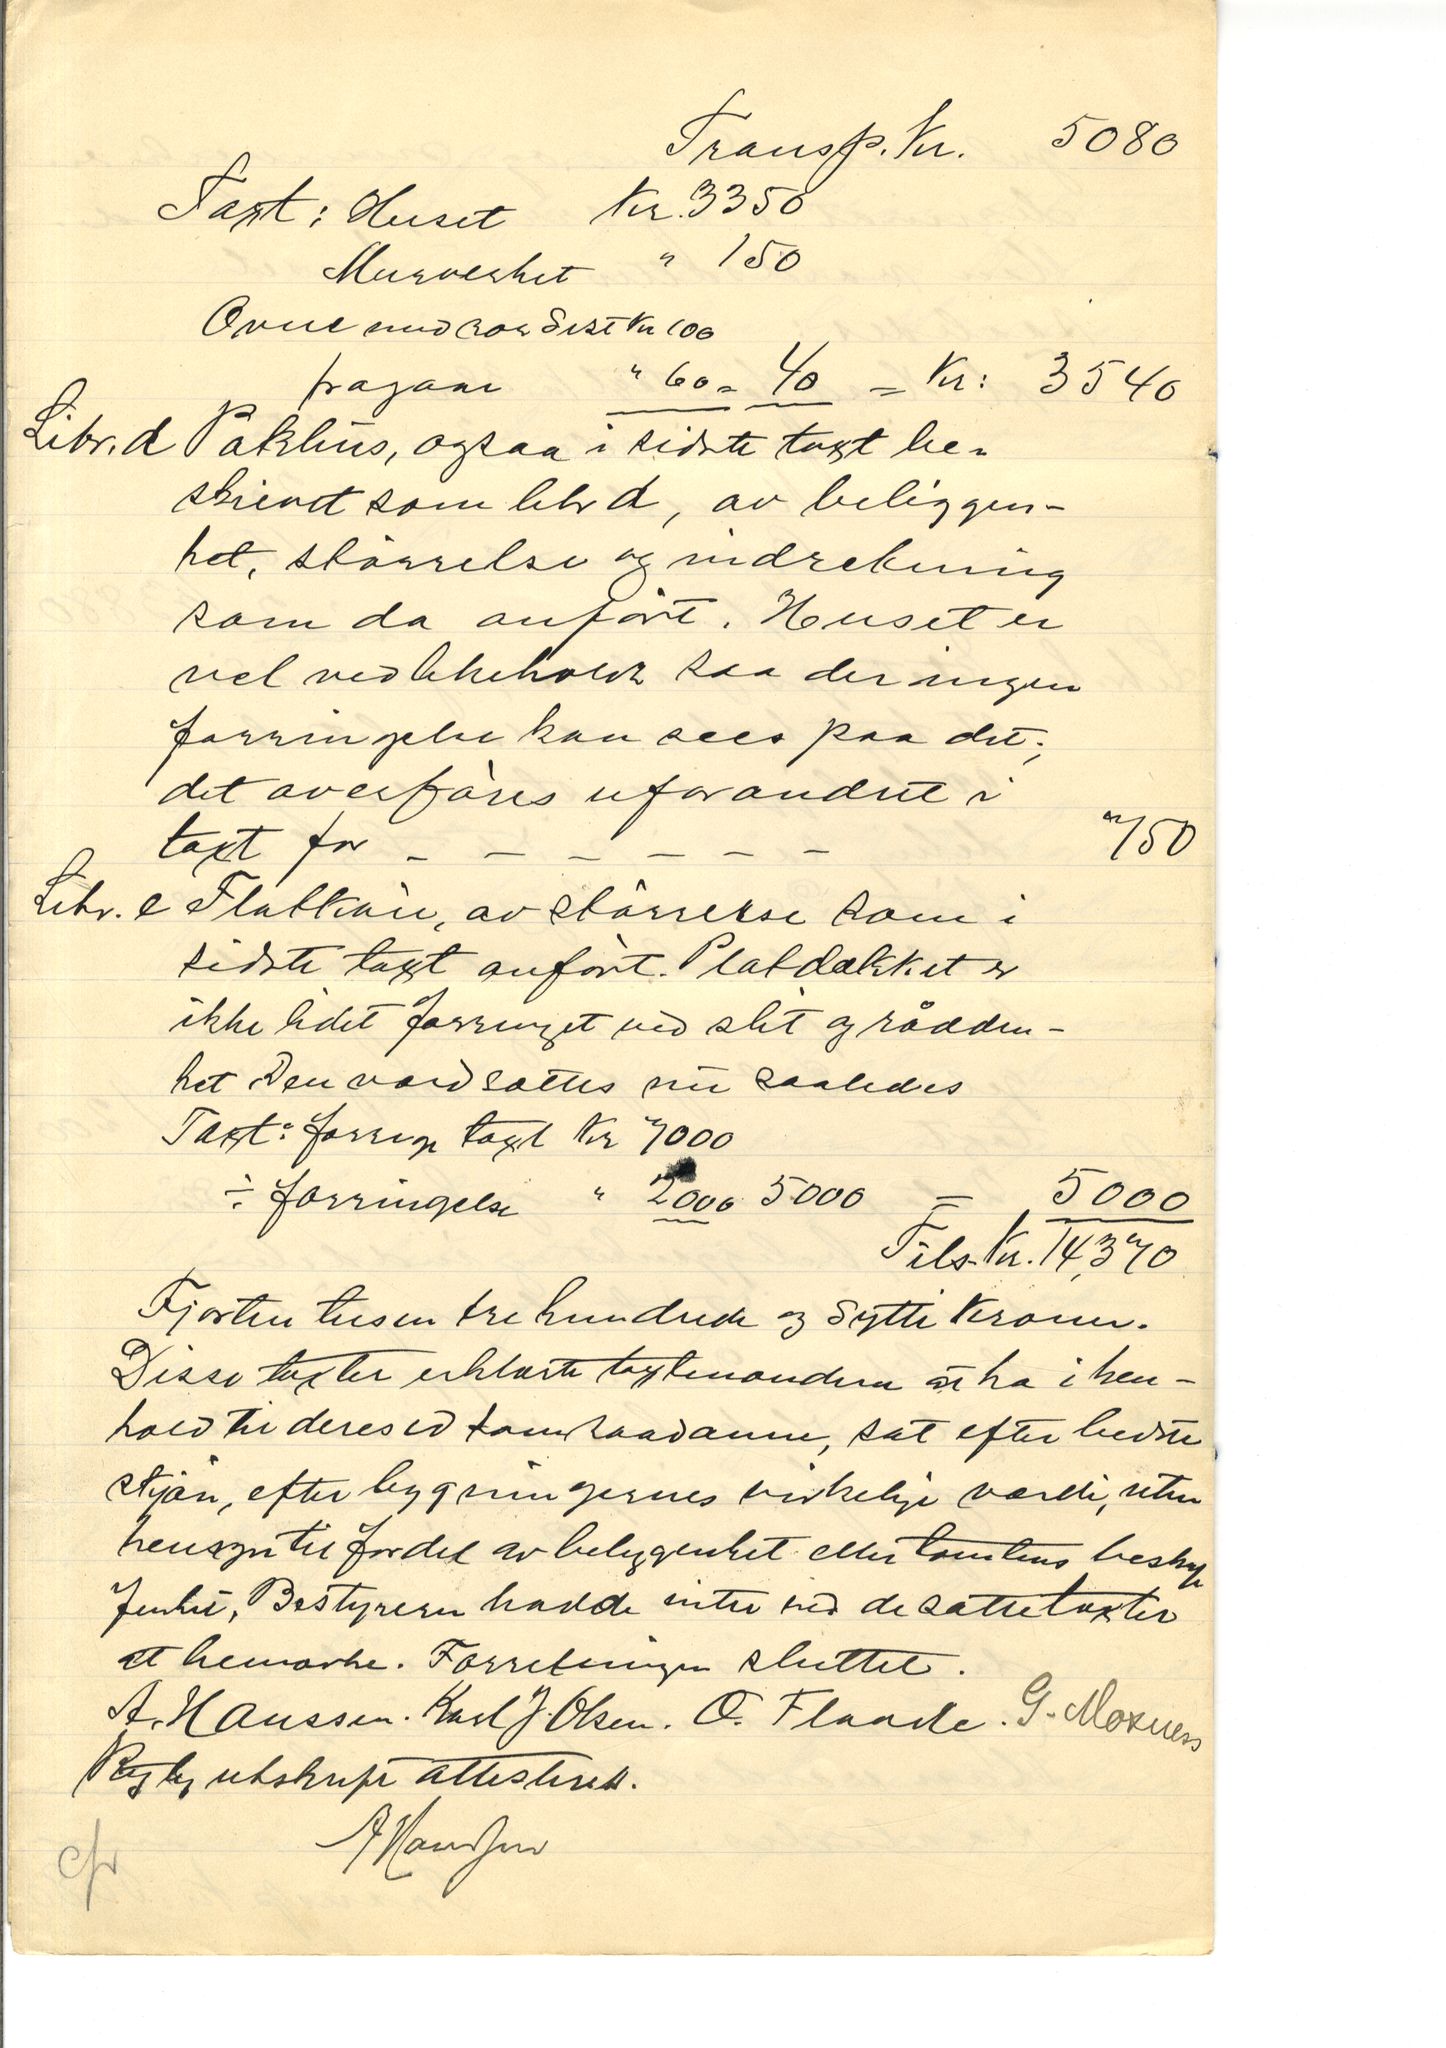 Transp. Kr. 5080
Taxt: Huset Kr. 3350
Murverket " 150
Ovne med rør Sidst Kr 100
fragaar " 60 = 40 = Kr: 3540
Litr. d Pakhus, ogsaa i sidste taxt be-
skrevet som litr d, av beliggen-
het, størrelse og indretning
som da anført. Huset er
vel vedlikeholdt saa der ingen
forringelse kan sees paa det;
det overføres uforandret i
taxt for - - - - - - 750
Litr. e Flatkai, av størrelse som i
sidste taxt anført. Platdækket er
ikke lidet forringet ved slit og raadden-
het Den værdsættes nu saaledes
Taxt: forrige taxt Kr 7000
÷ forringelse " 2000 5000 = 5000
Tils. Kr. 14,370
Fjorten tusen tre hundrede og Sytti Kroner.
Disse taxter erklærte taxtmændene at ha i hen-
hold til deres ed som saadanne, sat efter bedste
skjøn, efter bygningernes virkelige værdi, uten
hensyn til fordel av beliggenhet eller tomtens beskaf
fenhet, Bestyreren hadde intet ved de satte taxter
at bemærke. Forretningen sluttet.
A. Hanssen. Karl J. Olsen. O. Flaade. G. Moxness
Rigtig utskrift attesteres.
A Hanssen
cfr